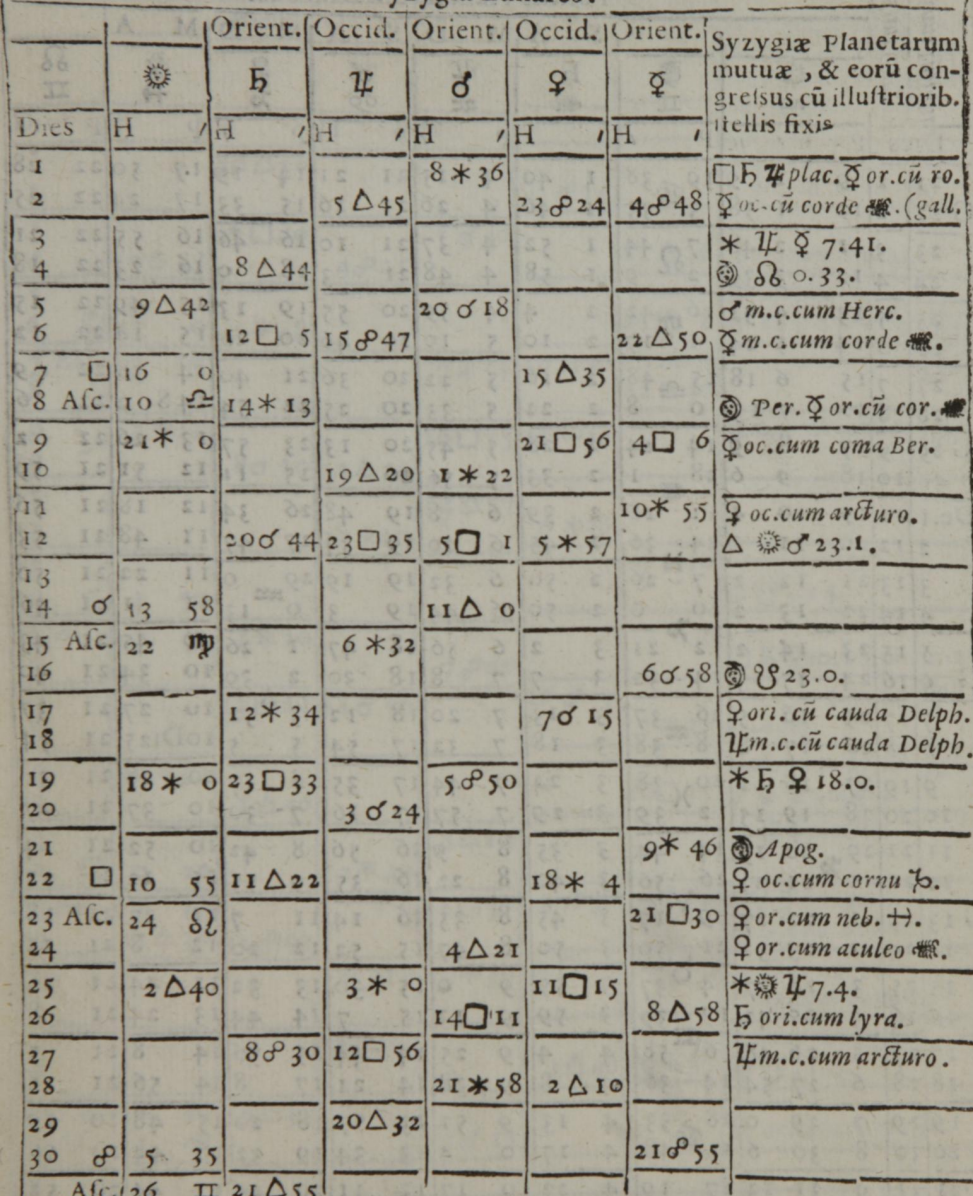 Orient. Occid. Orient. Occid. Orient. Syzygiæ Planetarum
☉ ♄ ♃ ♂ ♀ ☿ mutuæ , & eorū con-
gressus cū illustriorib.
Dies H ′ H ′ H ′ H ′ H ′ H ′ stellis fixis
1 8 ⚹ 36 □ ♄ ♃ plac. ☿ or. cū ro.
2 5 △ 45 23 ☍ 24 4 ☍ 48 ☿ oc. cū corde ♏. (gall.
3 ⚹ ♃ ☿ 7.41.
4 8 △ 44 ☽ ☊ 0.33.
5 9 △ 42 20 ☌ 18 ♂ m.c. cum Herc.
6 12 □ 5 15 ☍ 47 22 △ 50 ☿ m.c. cum corde ♏.
7 □ 16 0 15 △ 35
8 Asc. 10 ♎ 14 ⚹ 13 ☽ Per. ☿ or. cū cor. ♏
9 21 ⚹ 0 21 □ 56 4 □ 6 ☿ oc. cum coma Ber.
10 19 △ 20 1 ⚹ 22
11 10 ⚹ 55 ♀ oc. cum arcturo.
12 20 ☌ 44 23 □ 35 5 □ 1 5 ⚹ 57 △ ☉ ♂ 23.1.
13
14 ☌ 13 58 11 △ 0
15 Asc. 22 ♍ 6 ⚹ 32
16 6 ☌ 58 ☽ ☋ 23.0.
17 12 ⚹ 34 7 ☌ 15 ♀ ori. cū cauda Delph.
18 ♃ m.c. cū cauda Delph.
19 18 ⚹ 0 23 □ 33 5 ☍ 50 ⚹ ♄ ♀ 18.0.
20 3 ☌ 24
21 9 ⚹ 46 ☽ Apog.
22 □ 10 55 11 △ 22 18 ⚹ 4 ♀ oc. cum cornu ♑.
23 Asc. 24 ♌ 21 □ 30 ♀ or. cum neb. ♐.
24 4 △ 21 ♀ or. cum aculeo ♏.
25 2 △ 40 3 ⚹ 0 11 □ 15 ⚹ ☉ ♃ 7.4.
26 14 □ 11 8 △ 58 ♄ ori. cum lyra.
27 8 ☍ 30 12 □ 56 ♃ m.c. cum arcturo.
28 21 ⚹ 58 2 △ 10
29 20 △ 32
30 ☍ 5 35 21 ☍ 55
Asc. 26 ♊ 21 △ 55